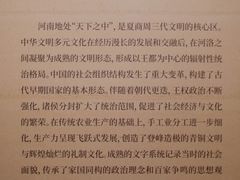 河南地处“天下之中”，是夏商周三代文明的核心区。
中华文明多元文化在经历漫长的发展和交融后，在河洛之
间凝聚为成熟的文明形态，形成以王都为中心的辐射性统
治格局。中国的社会组织结构发生了重大变革，构建了古
代早期国家的基本形态。伴随着朝代更迭，王权政治不断
强化，诸侯分封扩大了统治范围，促进了社会经济与文化
的繁荣。在传统农业基础上，手工业分工进一步细
化，生产力呈现飞跃式发展，创造了登峰造极的青铜文明
与辉煌灿烂的礼制文化。成熟的文字系统记录当时的社会
面貌，传承了家国同构的政治理念和百家争鸣的思想观